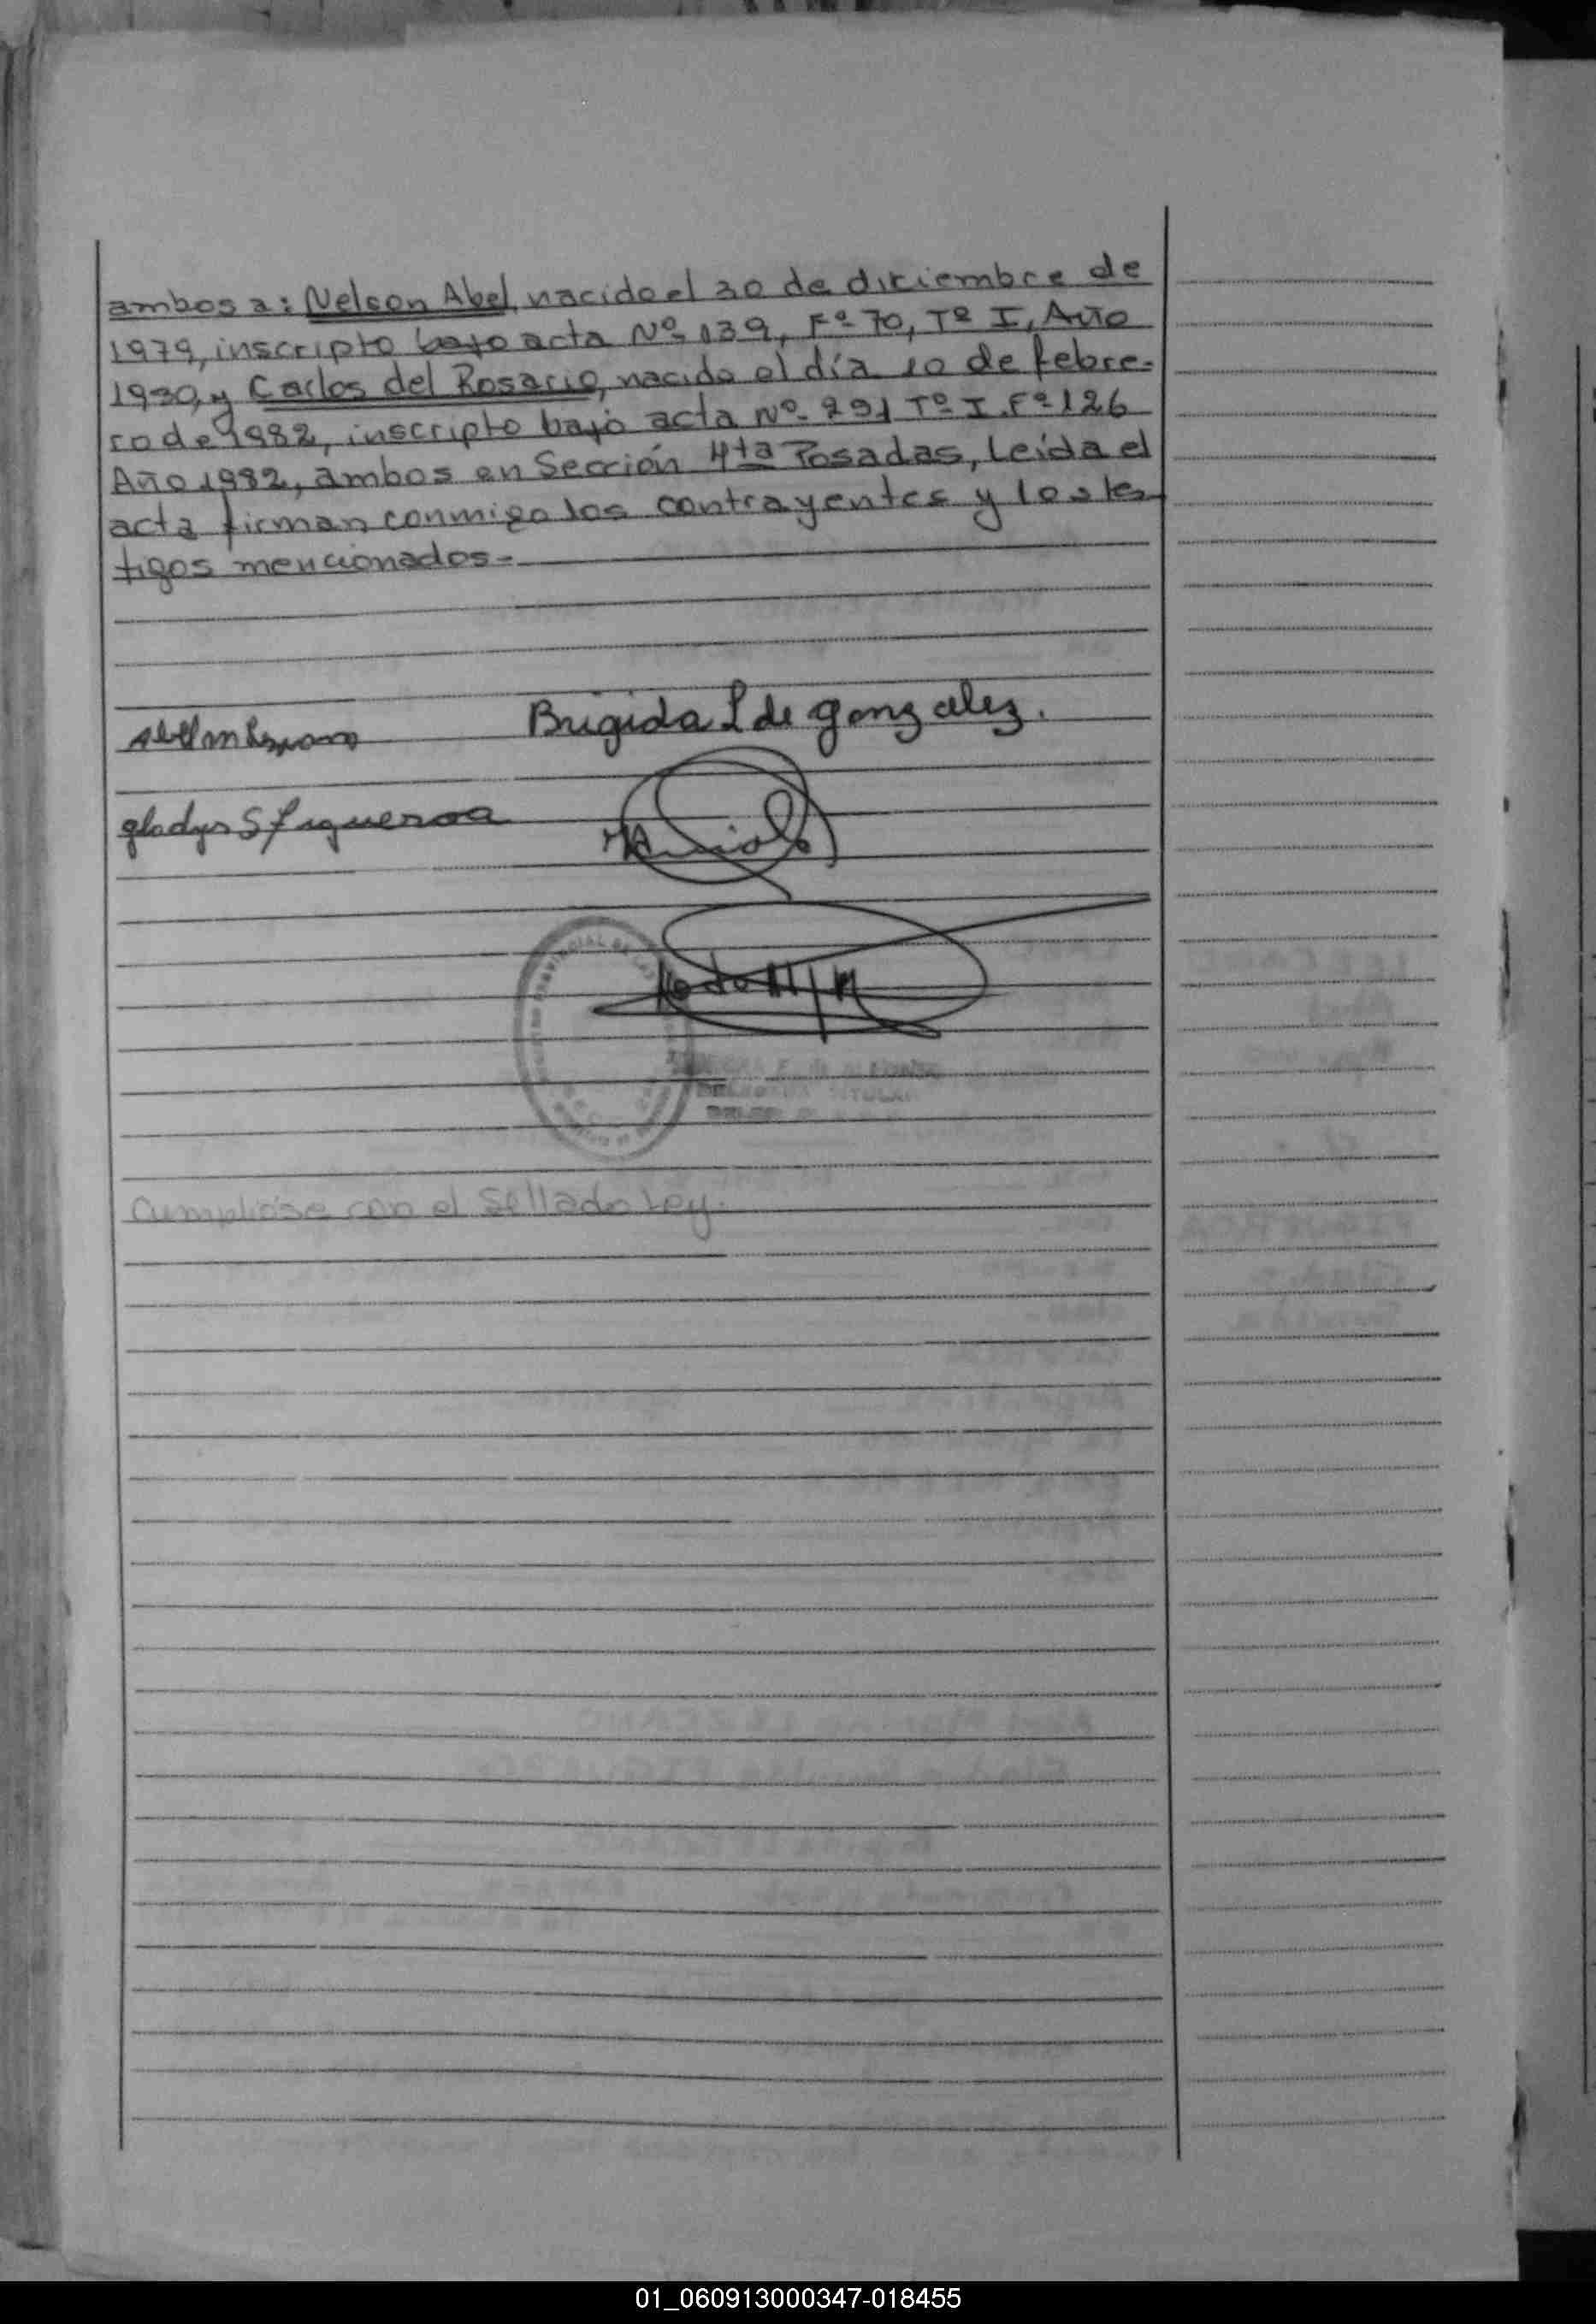 ambos a: Nelson Abel, nacido el 30 de diciembre de
1979, inscripto bajo acta Nº 139, Fº 70, Tº I, Año
1980, y Carlos del Rosario, nacido el día 10 de febre-
ro de 1982, inscripto bajo acta Nº 291 Tº I. Fº 126
Año 1982, ambos en Sección 4ta Posadas, Leída el
acta firman conmigo los contrayentes y los tes
tigos mencionados-
Brigida L de gonzalez.
gladys S figueroa
TITULAR
Cumplióse con el Sellado Ley.
01_060913000347-018455